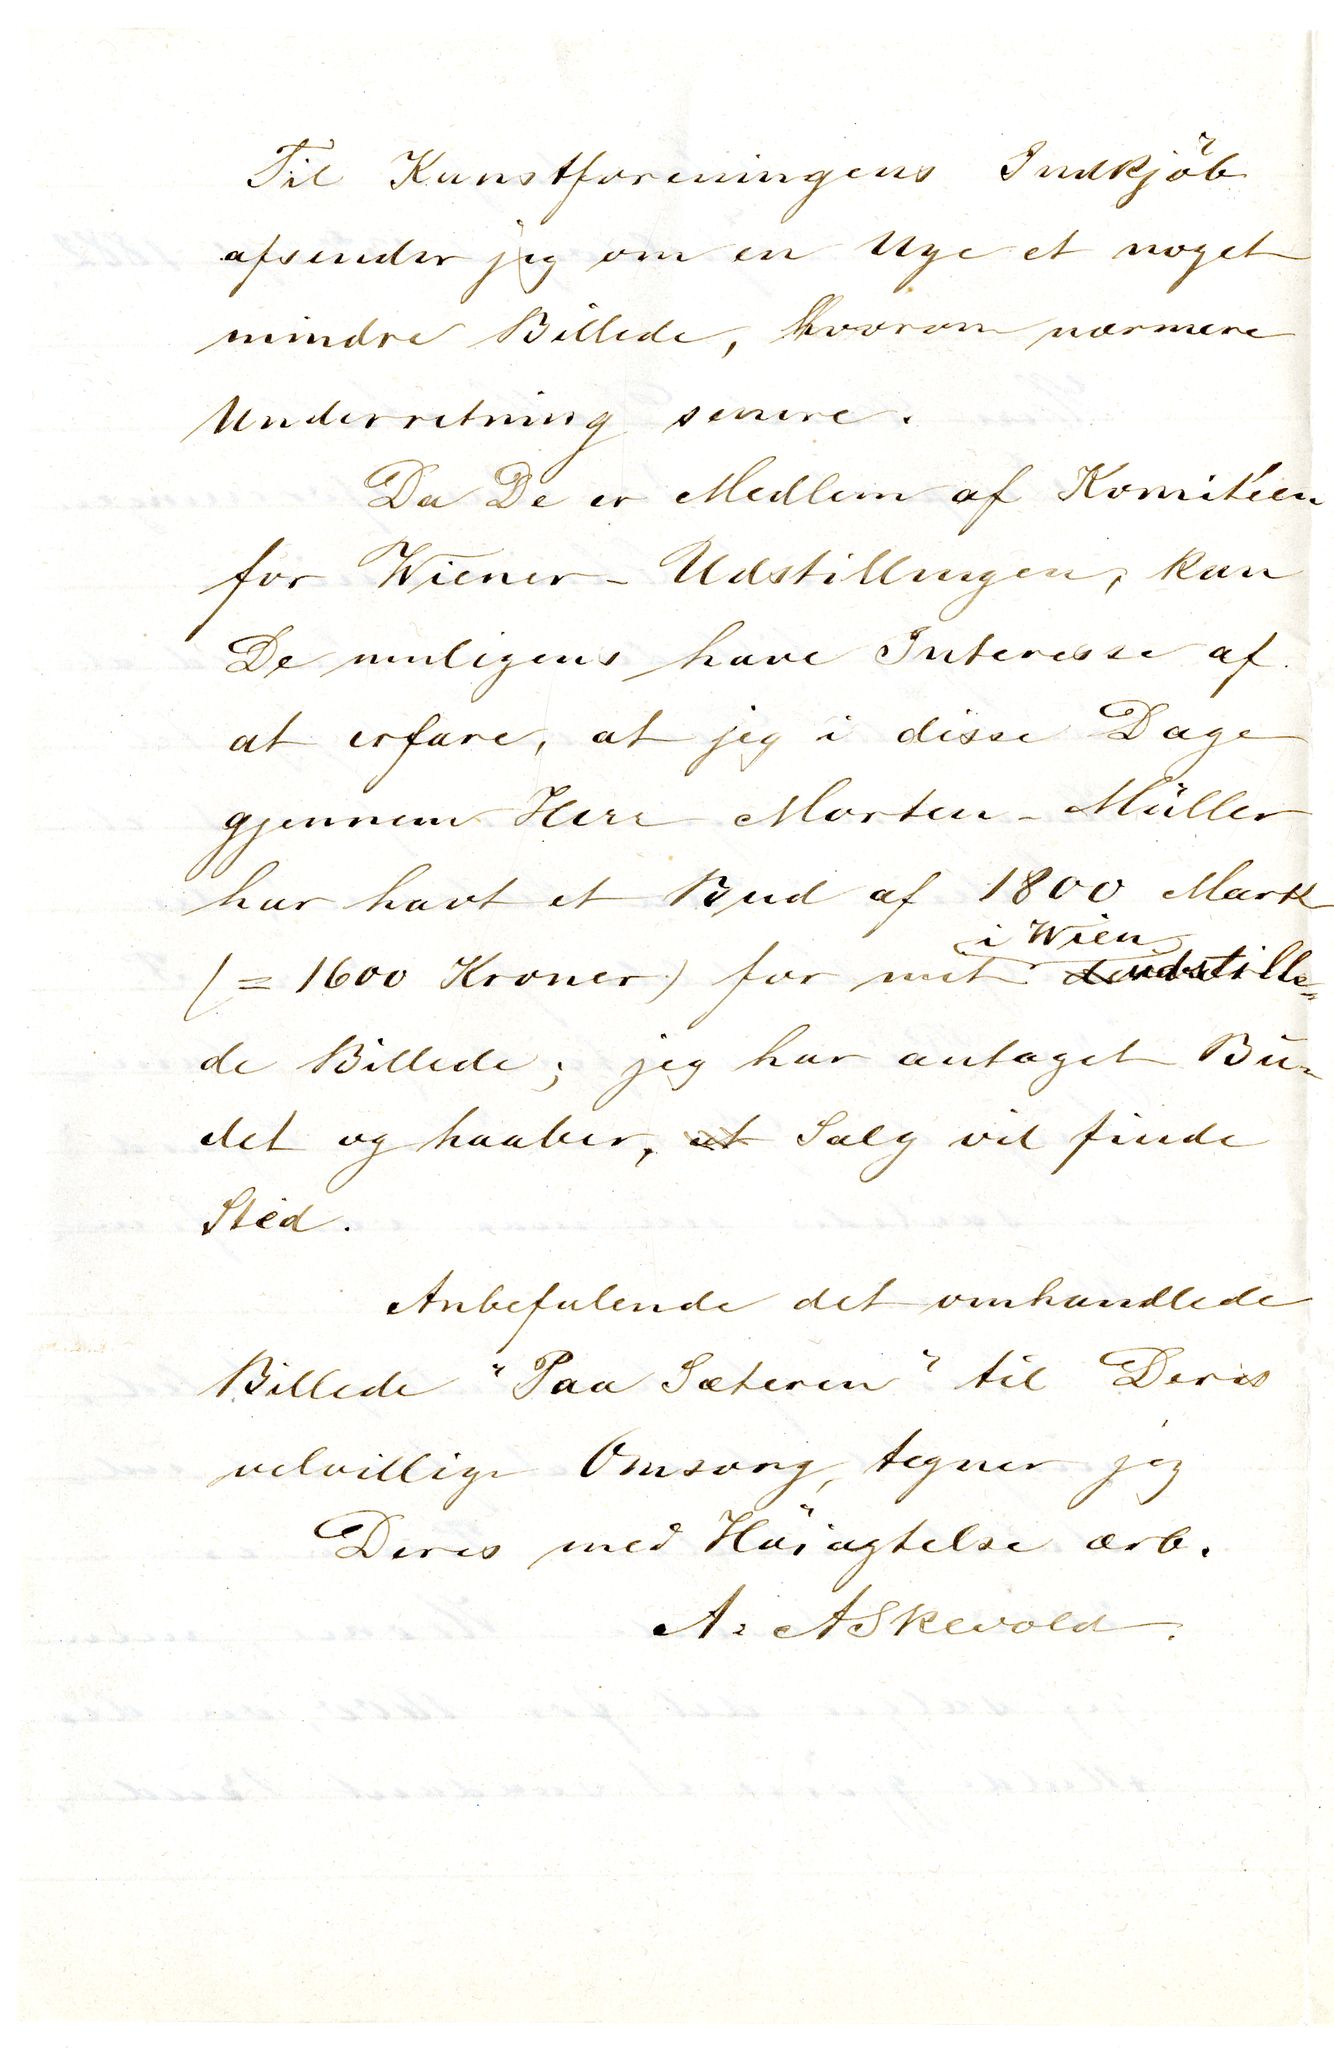 Til Kunstforeningens Indkjöb
afsender jeg om en Uge et noget
mindre Billede, hvorom nærmere
Underretning senere.
Da De er Medlem af Komitéen
for Wiener-Udstillingen, kan
De muligens have Interesse af
at erfare, at jeg i disse Dage
gjennem Herr Morten-Müller
har havt et Bud af 1800 Mark
i Wien
(= 1600 Kroner) for mit udstille-
de Billede; jeg har antaget Bu-
det og haaber, at Salg vil finde
Sted.
Anbefalende det omhandlede
Billede "Paa Sæteren" til Deres
velvillige Omsorg, tegner jeg
Deres med Höiagtelse ærb.
A. Askevold.